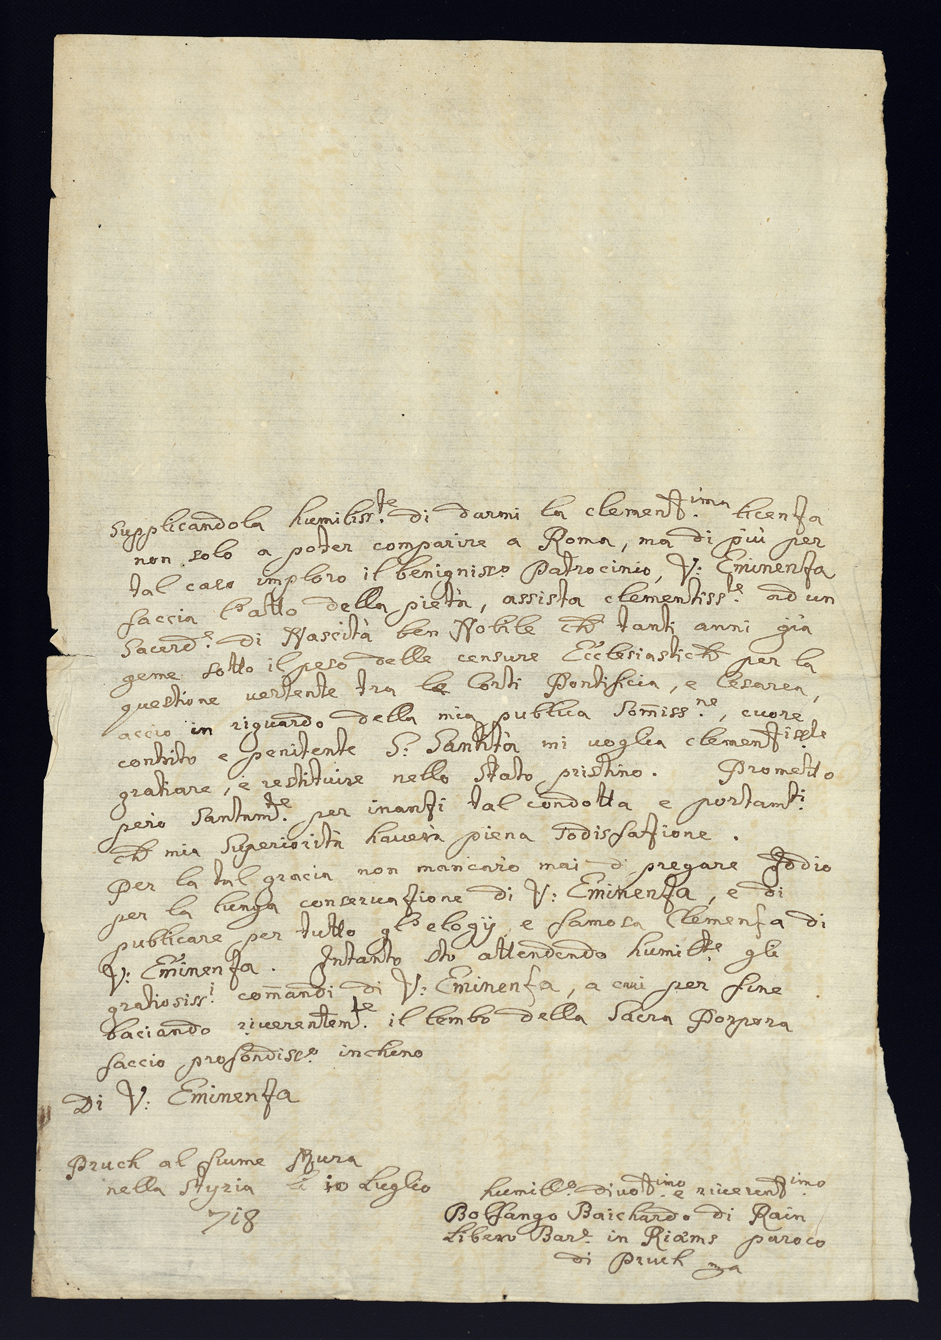 Supplicandola humiliss.te di darmi la clementss.ima licenza
non solo a poter comparire a Roma, ma di più per
tal caso imploro il benigniss.o Patrocinio, V: Eminenza
faccia l'atto della pietà, assista clementiss.te ad un
Sacerd.e di Nascità ben Nobile ch tanti anni già
geme sotto il peso delle censure Ecclesiastich per la
questione vertente tra le Corti Pontificia, e Cesarea,
accio in riguardo della mia publica Som̃iss.ne, cuore
contrito e penitente S: Santità mi voglia clementisste
gratiare, e restituire nello stato pristino. Prometto
però Santam.te per inanzi tal condotta e portam.ti
ch mia Superiorità haverà piena Sodisfazione.
Per la tal gracia non mancarò mai di pregare Iddio
per la lunga conservazione di V: Eminenza, e di
publicare per tutto gl'elogÿ, e famosa Clemenza di
V: Eminenza. Intanto sto attendendo humil.te gli
gratiosiss.i com̃andi di V: Eminenza, a cui per fine
baciando riverentem.te il lembo della Sacra Porpora
faccio profondiss.o inchino
Di V: Eminenza
Pruch al fiume Mura
nella Styria li 10 Luglio
718
humill.o divot.imo e riverent.imo
Bolfango Baichardo di Rain
Libero Bar.e in Riams paroco
di Pruch